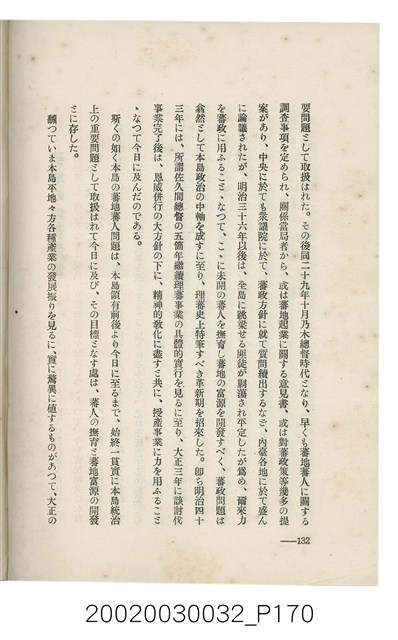 要問題として取扱はれた。その後同二十九年十月乃木總督時代となり、早くも蕃地蕃人に關する
調査事項を定められ、關係當局者から、或は蕃地起業に關する意見書、或は對蕃政策等幾多の提
案があり、中央に於ても衆議院に於て、蕃政方針に就て質問續出するなど、內臺各地に於て盛ん
に論議されたが、明治三十六年以後は、全島に跳梁せる匪徒が剿蕩され平定したが爲め、爾來力
を蕃政に用ふることゝなつて、こゝに未開の蕃人を撫育し蕃地の富源を開發すべく、蕃政問題は
翕然として本島政治の中軸を成すに至り、理蕃史上特筆すべき革新期を招來した。卽ち明治四十
三年には、所謂佐久間總督の五箇年繼續理蕃事業の具體的實行を見るに至り、大正三年に該討伐
事業完了後は、恩威併行の大方針の下に、精神的敎化に盡すと共に、授產事業に力を用ふること
ゝなつて今日に及んだのである。
斯くの如く本島の蕃地蕃人問題は、本島領有前後より今日に至るまで、始終一貫實に本島統治
上の重要問題として取扱はれて今日に及び、その目標となす處は、蕃人の撫育と蕃地富源の開發
とに存した。
飜つていま本島平地々方各種產業の發展振りを見るに、實に驚異に値するものがあつて、大正の
132
20020030032_P170